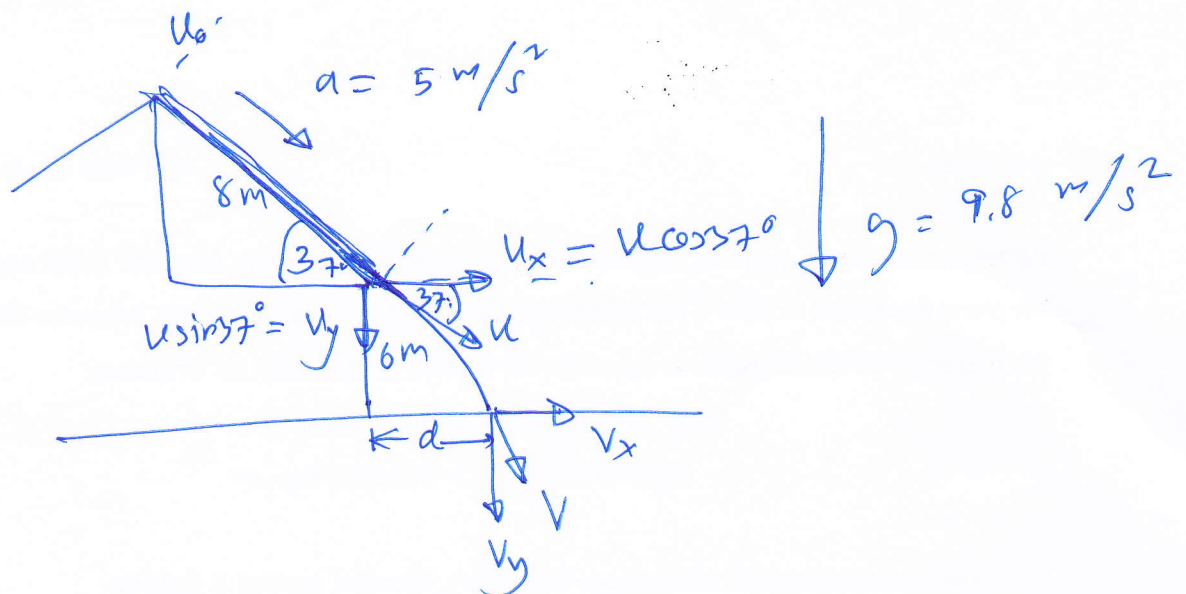 u₀
a = 5 m/s²
8m
37°
uₓ = u cos37°
g = 9.8 m/s²
37°
u sin37° = uy
u
6m
d
Vₓ
V
Vy